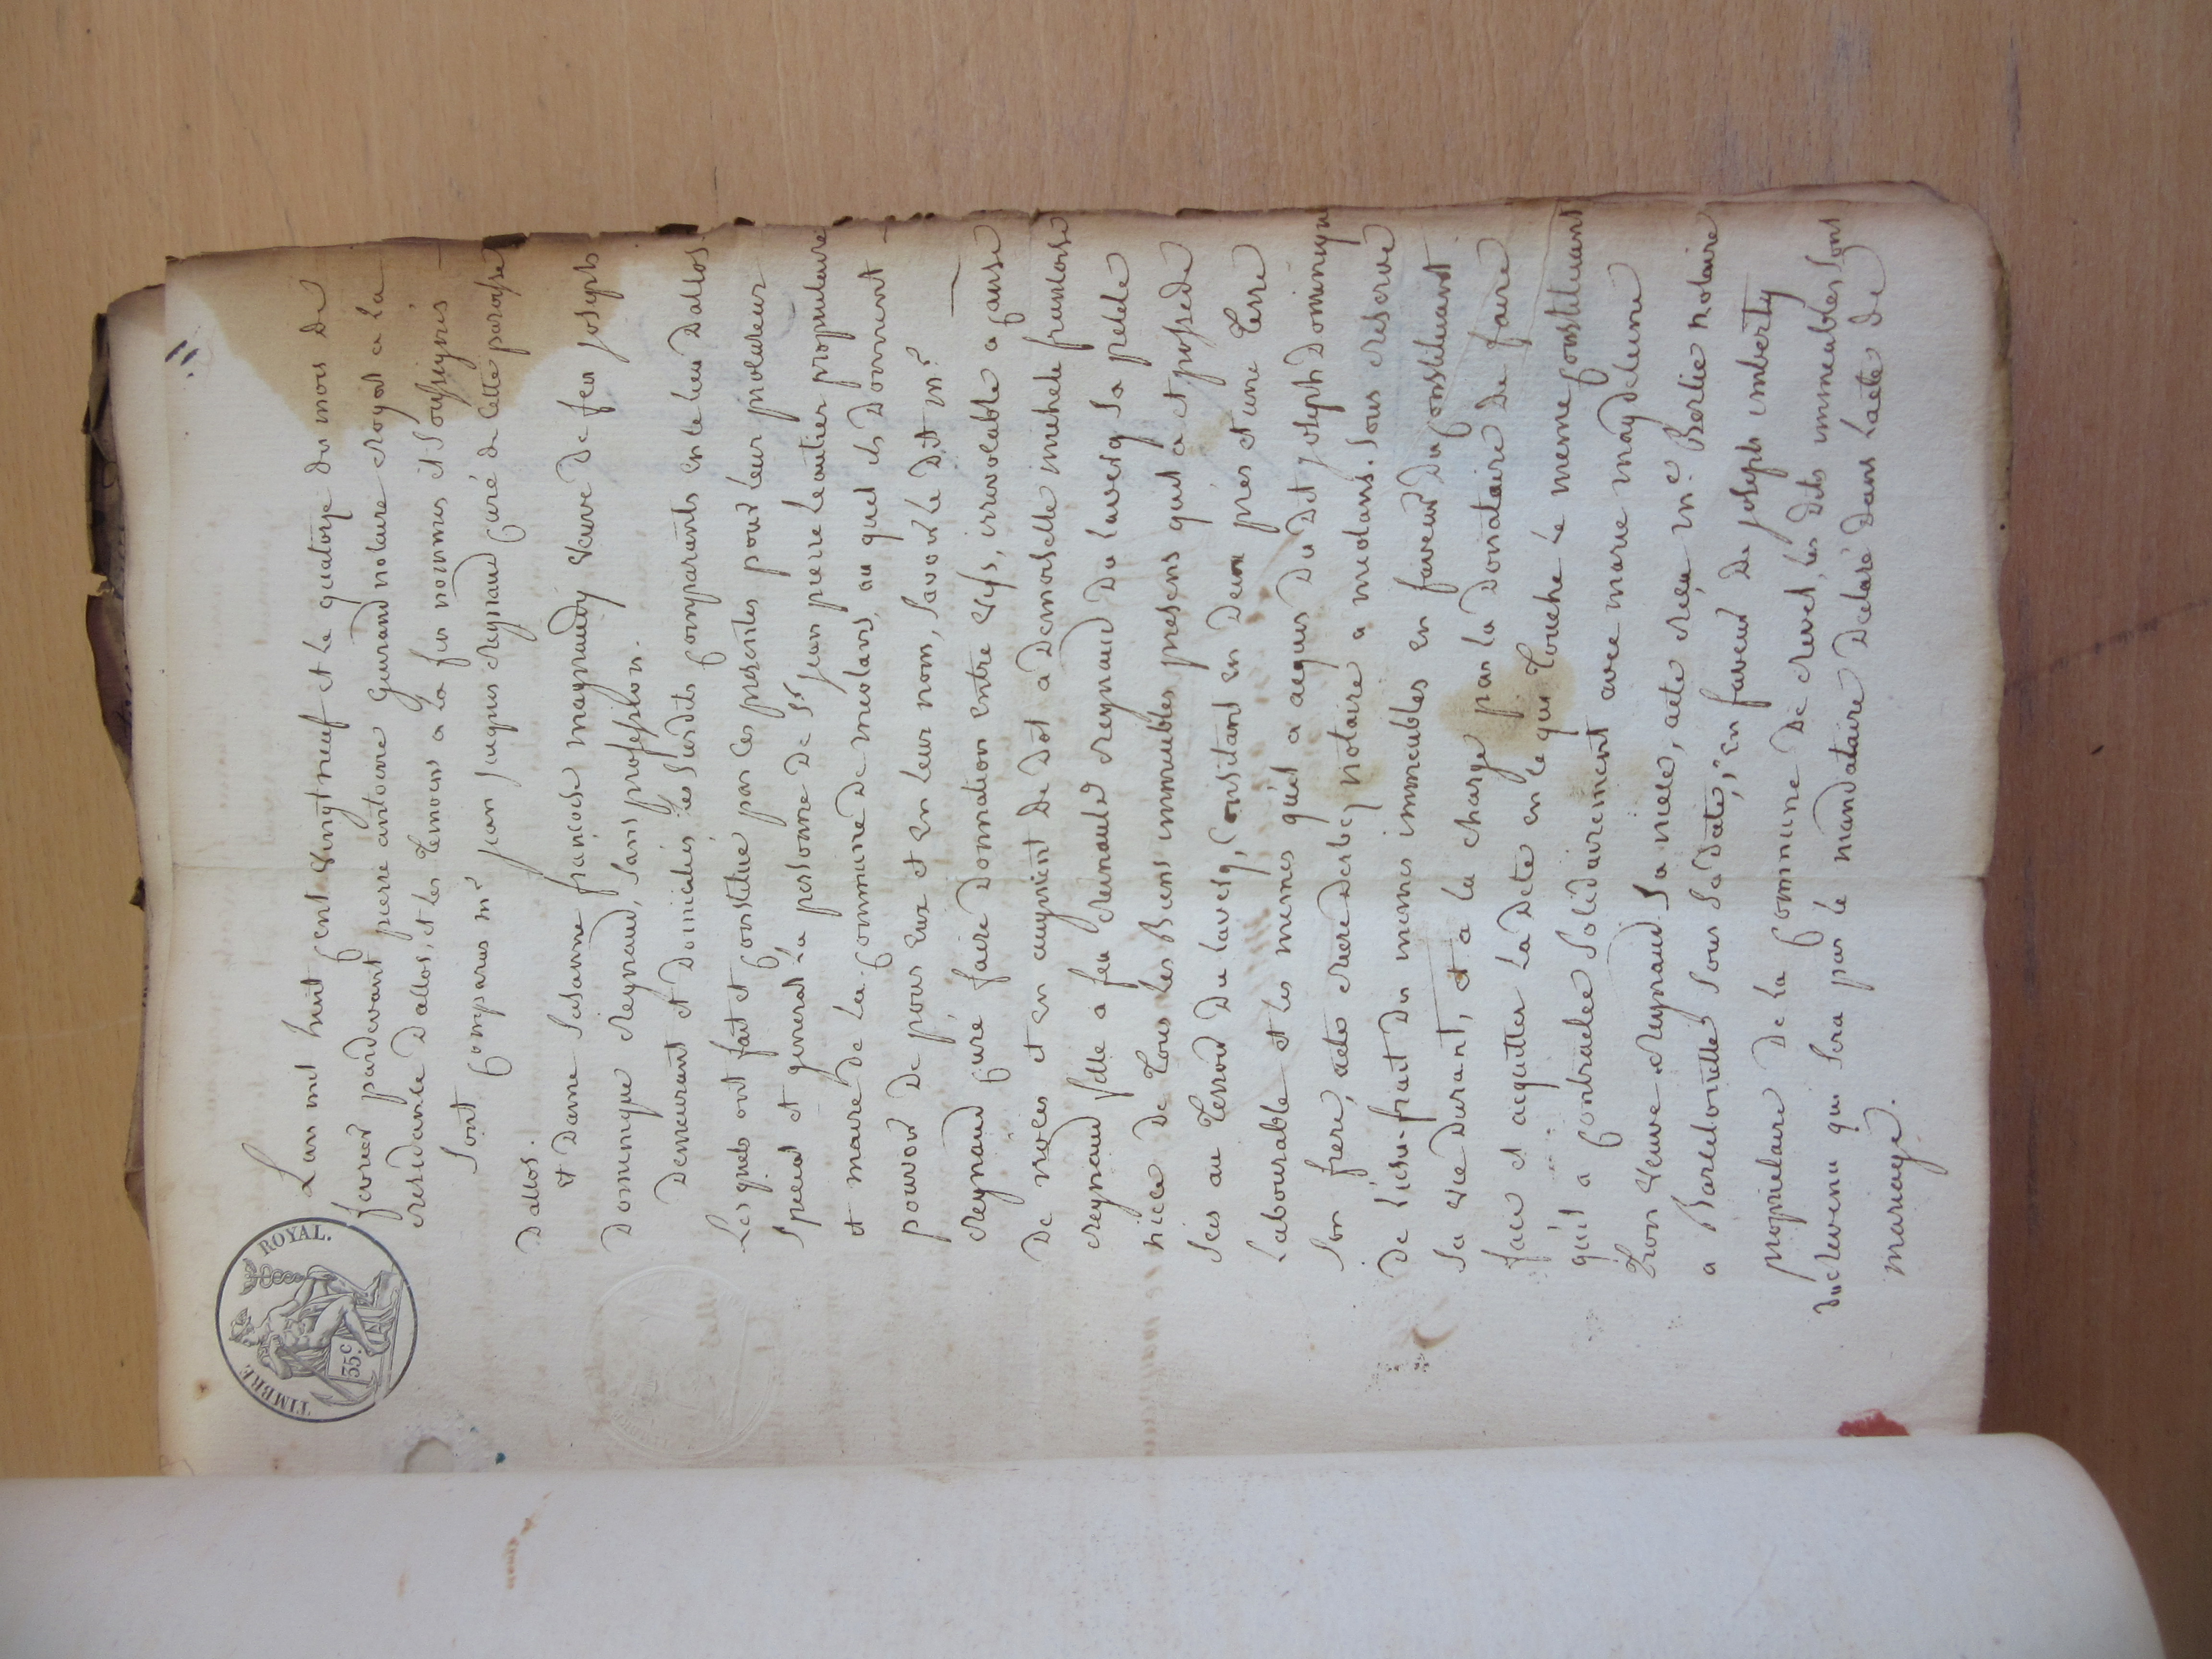 11
TIMBRE ROYAL.
35 c.
L'an mil huit cent vingt neuf et le quatorze du mois de
fevrier pardevant pierre antoine Guirand notaire royal a la
residance Dallos, et les temoins a la fin nommes et soussignés
Sont comparus mr jean jacques Reynaud curé de cette paroisse
Dallos.
et Dame Susanne françoise magnaudy veuve de feu joseph
Dominique Reynaud, sans profession.
Demeurant et Domiciliés les susdits comparants en ce lieu Dallos.
Les quels ont fait et constitué par ces presentes pour leur procureur
special et general la personne de Sr jean pierre Leautier proprietaire
et maire de la commune de meolans, au quel ils donnent
pouvoir de pour eux et en leur nom, savoir le dit mr
Reynaud curé, faire donnation entre vifs, irrevocable a cause
de noces et en augment de dot a demoiselle michele francoise
Reynaud fille a feu Reinauld Reynaud du laverq sa petite
niece de tous les Biens immeubles presens quil a et possede
scis au terroir du laverq, consistant en deux prés et une terre
labourable et les mêmes qu'il a acquis du dit joseph Dominique
son frere, acte riere notaire a meolans. sous reserve
de l'usu-fruit des memes immeubles en faveur du constituant
sa vie durant, et a la charge par la Donataire de faire
face et acquitter la dete en ce qui touche le meme constituant
qu'il a contractee solidairement avec marie magdeleine
Tron veuve Reynaud sa niece, acte reçu me Berlie notaire
a Barcelonette sous sa date, en faveur de joseph imberty
proprietaire de la commune de revel, les dits immeubles sont
du revenu qui sera par le mandataire declaré dans lacte de
mariage.